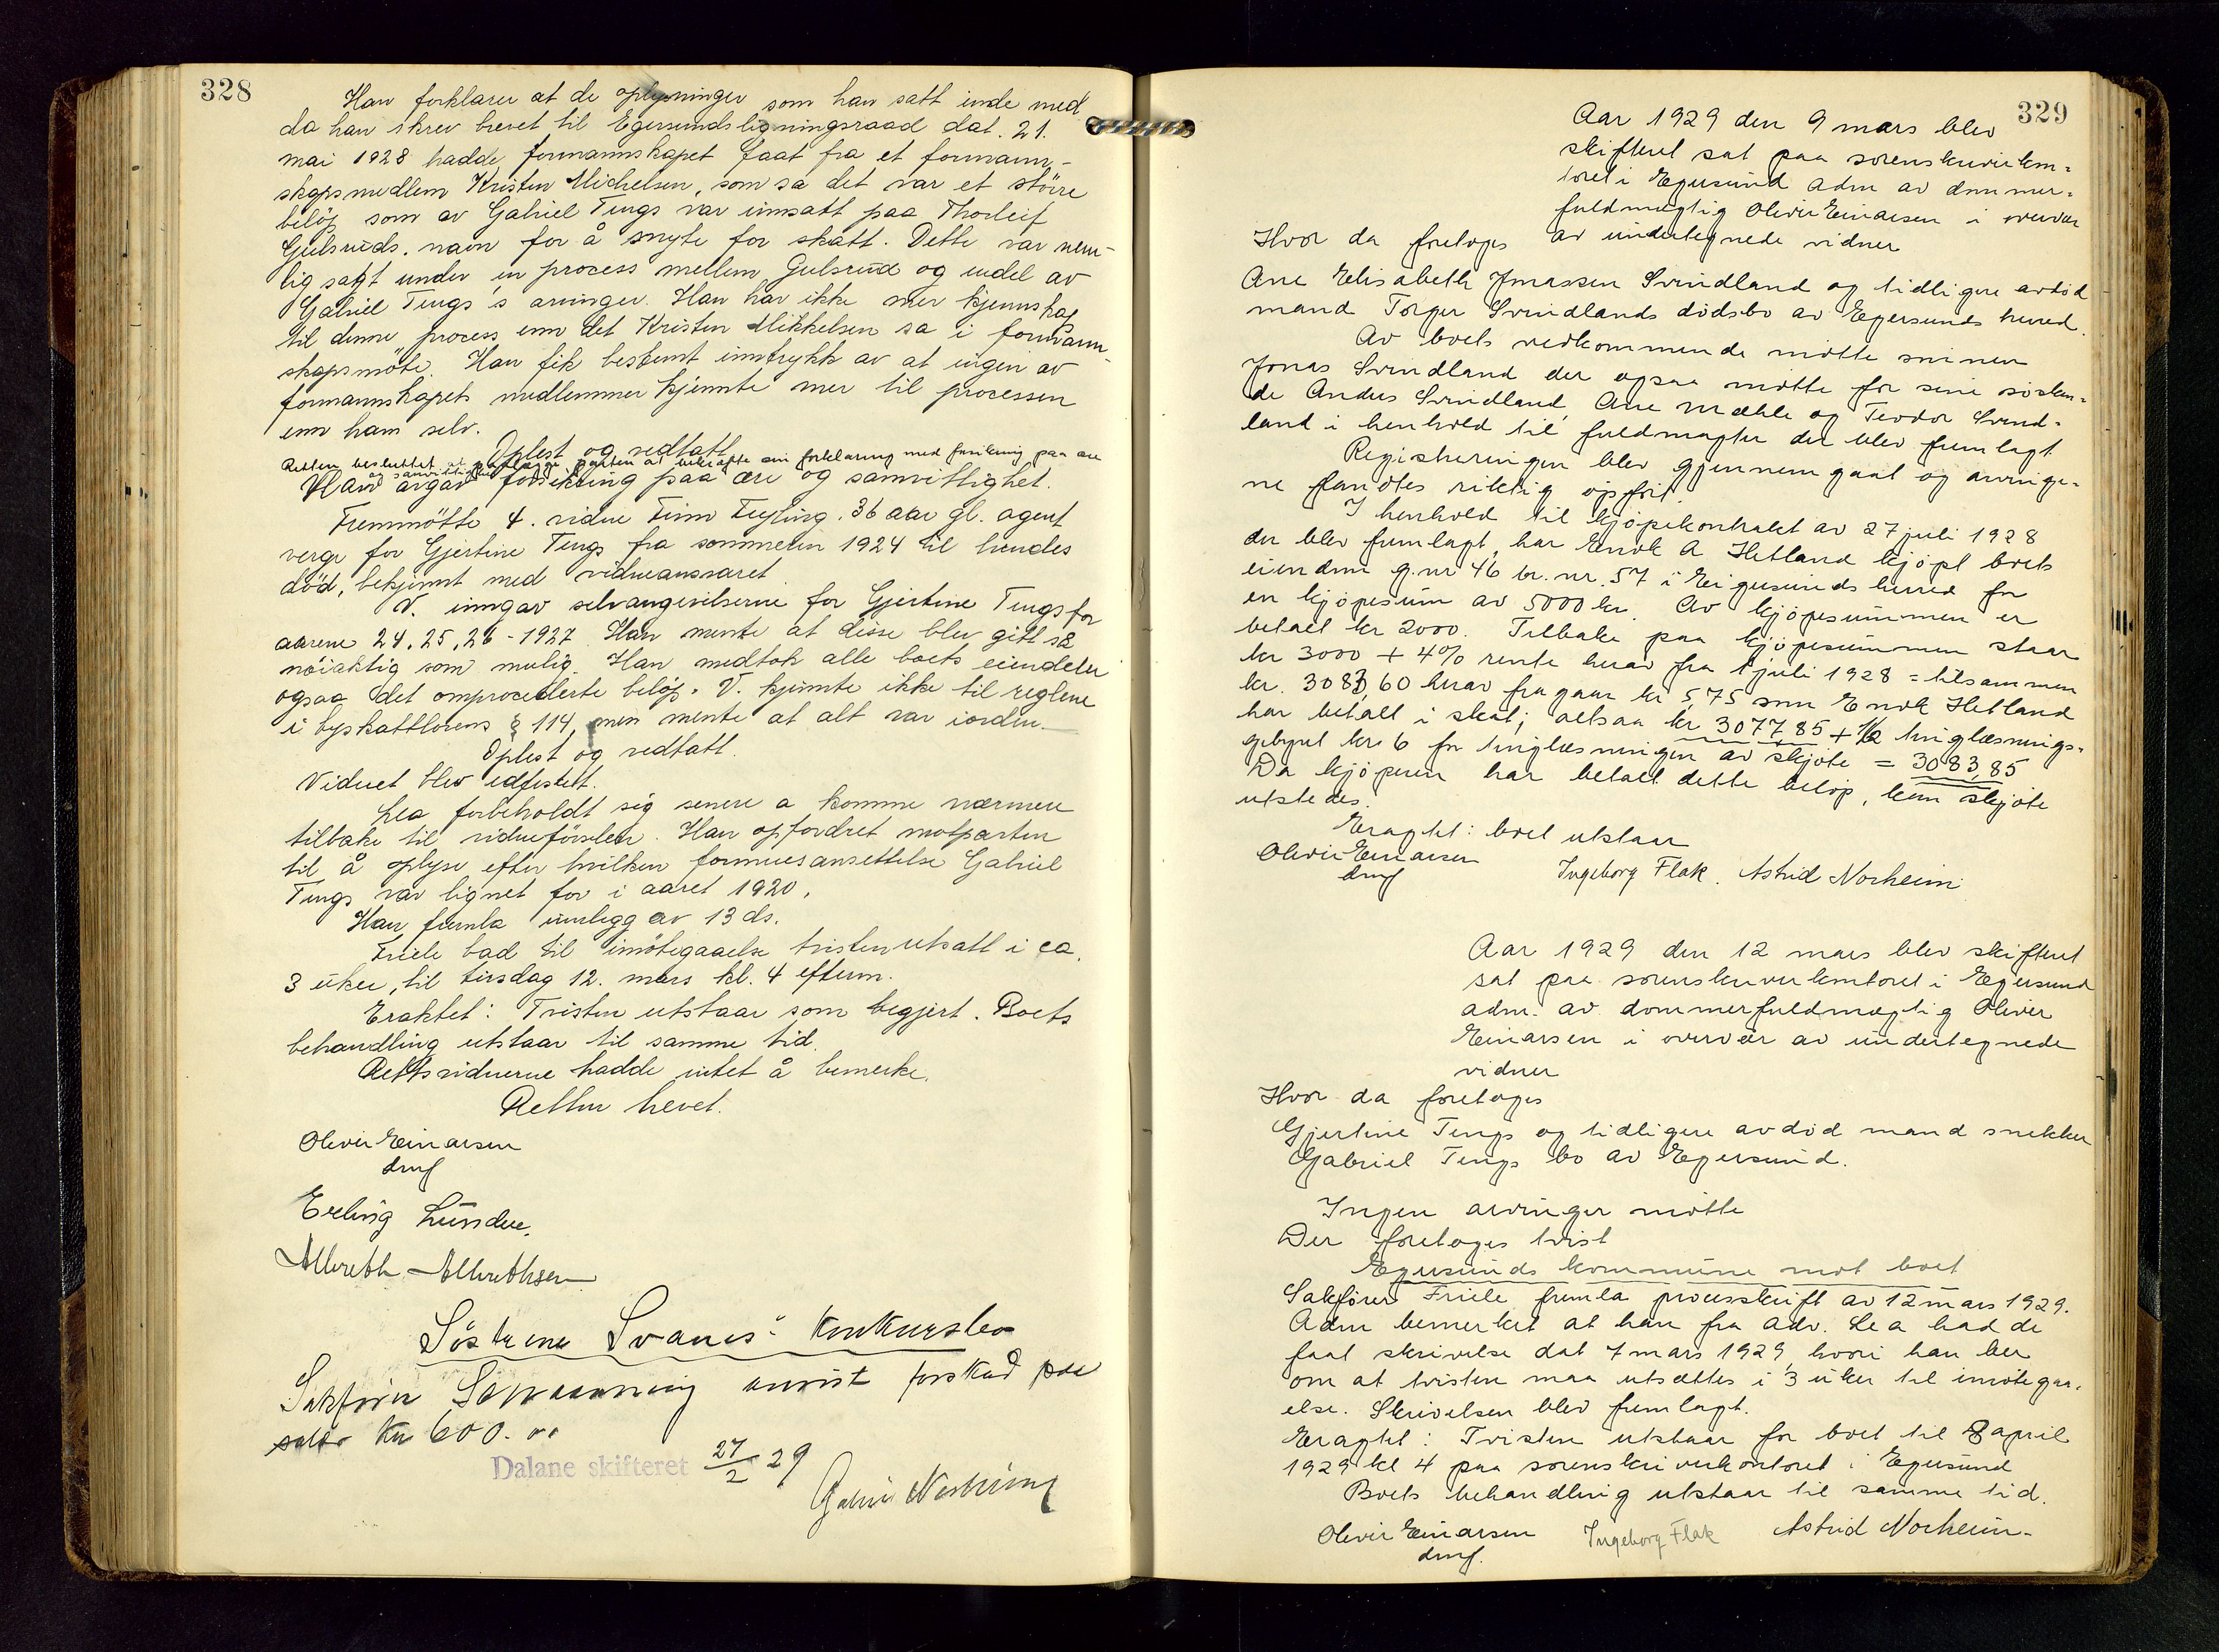 328
Han forklarer at de oplysninger som han satt inde med
da han skrev brevet til Egersunds ligningsraad dat. 21.
mai 1928 hadde formannskapet faat fra et formann-
skapsmedlem Kristen Michelsen, som sa det var et større
beløp som av Gabriel Tengs var innsatt paa Thorleif
Gulsruds navn for å snyte for skatt. Dette var nem-
lig sagt under en process mellem Gulsrud og endel av
Gabriel Tengs's arvinger. Han har ikke mer kjennskap
til denne process enn det Kristen Mikkelsen sa i formann-
skapsmöte. Han fik bestemt inntrykk av at ingen av
formannskapets medlemmer kjennte mer til processen
enn ham selv.
Oplest og vedtatt
Retten besluttet at paalegge parten at bekræfte sin forklaring med forsikring paa ære
og samvittighet
Han avgav forsikring paa ære og samvittighet.
Fremmötte 4. vidne Finn Feyling. 36 aar gl. agent
verge for Gjertine Tengs fra sommeren 1924 til hendes
död, bekjennt med vidneansvaret.
V. inngav selvangivelserne for Gjertine Tengs for
aarene 24, 25, 26 - 1927. Han mente at disse blev gitt så
nöiaktig som mulig. Han medtok alle boets eiendeler
ogsaa det omprocederte belöp. V. kjennte ikke til reglene
i byskattlovens § 114, men mente at alt var iorden.
Oplest og vedtatt.
Vidnet blev edfestet.
Lea forbeholdt sig senere a komme nærmere
tilbake til vidneförselen. Han opfordret motparten
til å oplyse efter hvilken formuesansettelse Gabriel
Tengs var lignet for i aaret 1920.
Han fremla innlegg av 13 ds.
Friele bad til imötegaaelse tvisten utsatt i ca.
3 uker, til tirsdag 12. mars kl. 4 efterm.
Eraktet: Tvisten utstaar som begjert. Boets
behandling utstaar til samme tid.
Rettsvidnerne hadde intet å bemerke.
Retten hevet.
Oliver Einarsen
dmf
Erling Lunde.
Albreth Albrethsen
Söstrene Svanes' Konkursbo
Sakförer anvist forskud paa
Kr 600.00
Dalane skifteret 27/2 29
329
Aar 1929 den 9 mars blev
skifteret sat paa sorenskriverkon-
toret i Egersund adm av dommer-
fuldmægtig Oliver Einarsen i overvær
av undertegnede vidner
Hvor da foretoges
Ane Elisabeth Jonassen Svindland og tidligere avdöd
mand Torger Svindlands dödsbo av Egersunds herred.
Av boets vedkommende mötte sönnen
Jonas Svindland der ogsaa mötte for sine sösken-
de Andres Svindland, Ane Mæhle og Teodor Svind-
land i henhold til fuldmagter der blev fremlagt
Registreringen blev gjennemgaat og arvinge-
ne fandtes riktig opfört.
I henhold til kjöpekontrakt av 27 juli 1928
der blev fremlagt, har Enok A Hetland kjöpt boets
eiendom g.nr 46 br. nr. 57 i Eigersunds herred for
en kjöpesum av 5000 kr. Av kjöpesummen er
betalt kr 2000. Tilbake paa kjöpesummen staar
kr 3000 + 4% rente herav fra 1 juli 1928 = tilsammen
kr. 3083,60 herav fragaar kr 5,75 som Enok Hetland
har betalt i skat; altsaa kr 3077,85 + 1/2 tinglæsnings-
gebyret kr. 6 for tinglæsningen av skjöte = 3083,85
Da kjöperen har betalt dette belöp, kan skjöte
utstedes.
Eragtet: boet utstaar
Oliver Einarsen
dmf
Ingeborg Flak. Astrid Norheim.
Aar 1929 den 12 mars blev skifteret
sat paa sorenskriverkontoret i Egersund
adm. av dommerfuldmægtig Oliver
Einarsen i overvær av undertegnede
vidner
Hvor da foretoges
Gjertine Tengs og tidligere avdöd mand snekker
Gabriel Tengs bo av Egersund.
Ingen arvinger mötte
Der foretoges tvist
Egersunds kommune mot boet
Sakförer Friele fremla processkrift av 12 mars 1929.
Adm bemerket at han fra adv. Lea hadde
faat skrivelse dat 7 mars 1929, hvori han ber
om at tvisten maa utsættes i 3 uker til imötegaa-
else. Skrivelsen blev fremlagt.
Eragtet: Tvisten utstaar for boet til 8 april
1929 kl 4 paa sorenskriverkontoret i Egersund
Boets behandling utstaar til samme tid.
Oliver Einarsen
dmf.
Ingeborg Flak Astrid Norheim-